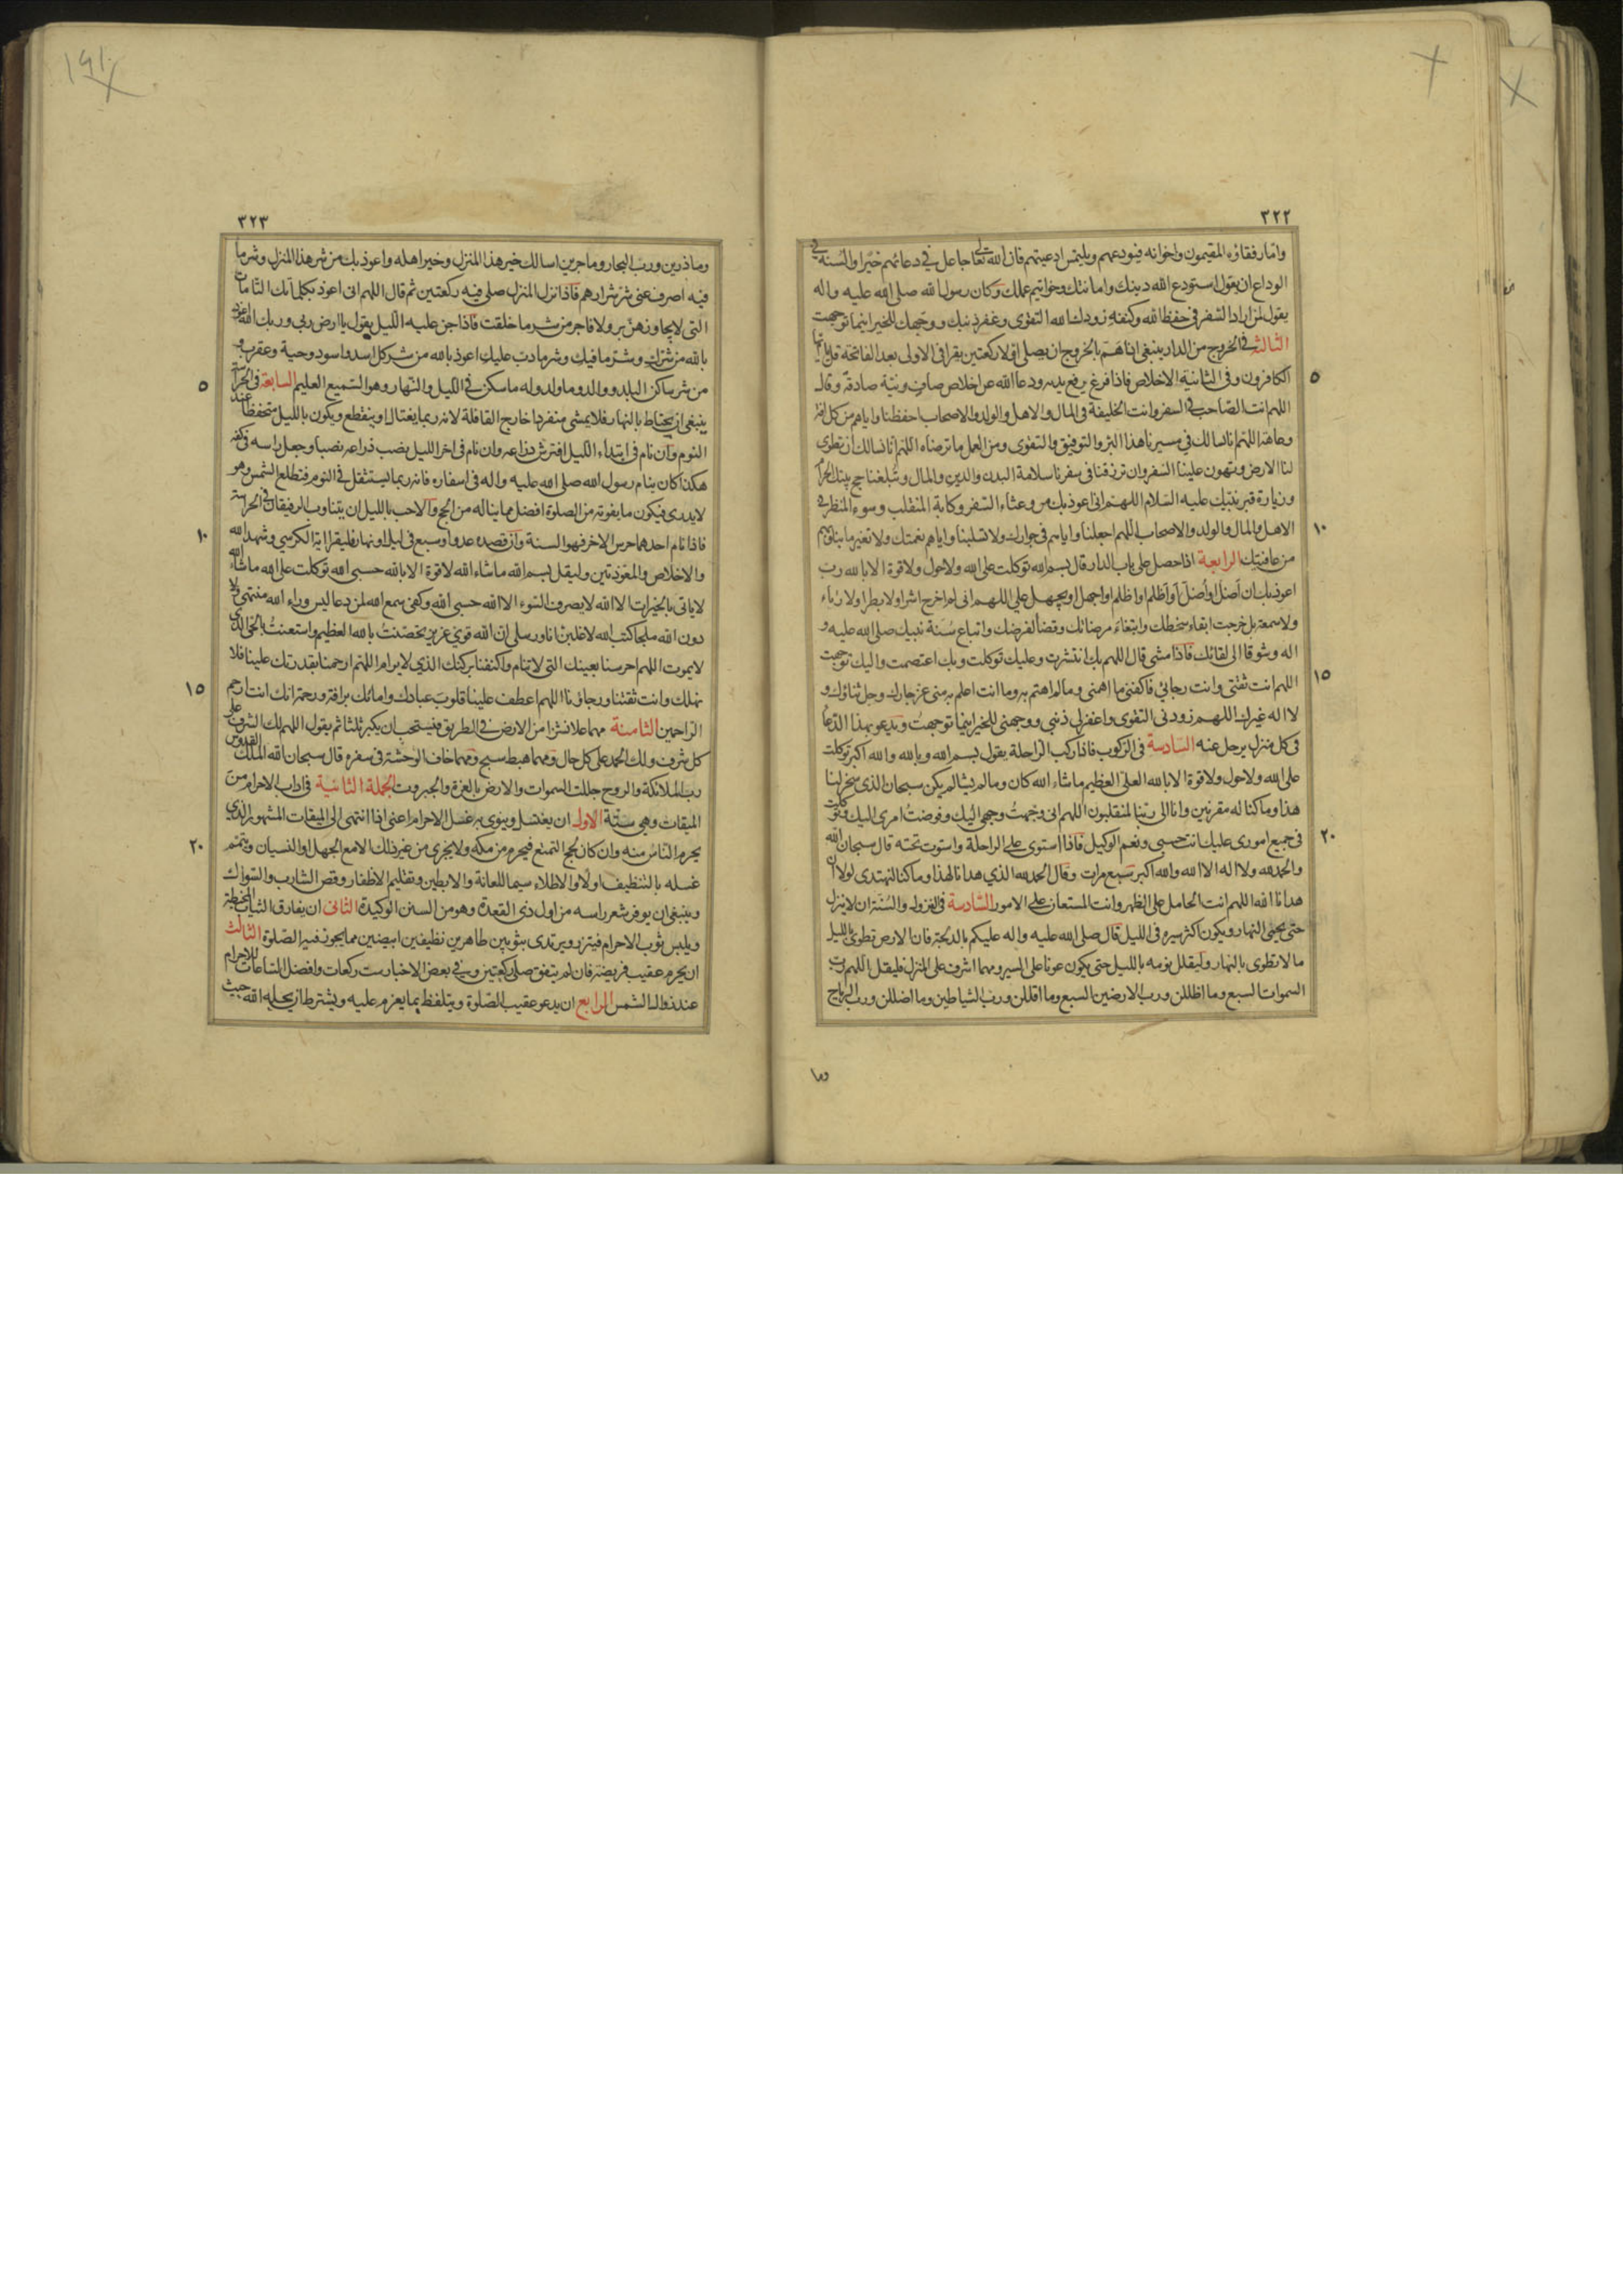 ٣٢٢
واما رفقاؤه المقيمون واخوانه فيودعهم ويلتمس ادعيتهم فان الله تعالى جاعل في دعائهم خيرا والسنة في
الوداع ان يقول استودع الله دينك وامانتك وخواتيم عملك وكان رسول الله صلى الله عليه واله
يقول لمن اراد السفر في حفظ الله وكنفه زودك الله التقوى وغفر ذنبك ووجهك للخير اينما توجهت
الثالث في الخروج من الدار ينبغي اذا هم بالخروج ان يصلي اولا ركعتين يقرا في الاولى بعد الفاتحة قل يا ايها
٥
الكافرون وفي الثانية الاخلاص فاذا فرغ يرفع يديه ودعا الله عن اخلاص صاف ونية صادقة وقال
اللهم انت الصاحب في السفر وانت الخليفة في المال والاهل والولد والاصحاب احفظنا واياهم من كل افة
وعاهة اللهم انا نسالك في مسيرنا هذا البر والتوفيق والتقوى ومن العمل ما ترضاه اللهم انا نسالك ان تطوى
لنا الارض وتهون علينا السفر وان ترزقنا في سفرنا سلامة البدن والدين والمال وتبلغنا حج بيتك الحرام
وزيارة قبر نبيك عليه السلام اللهم انى اعوذ بك من وعثاء السفر وكابة المنقلب وسوء المنظر في
١٠
الاهل والمال والولد والاصحاب اللهم اجعلنا واياهم في جوارك ولا تسلبنا واياهم نعمتك ولا تغير ما بنا وبهم
من عافيتك الرابعة اذا حصل على باب الدار قال بسم الله توكلت على الله ولا حول ولا قوة الا بالله رب
اعوذ بك ان اضل او اضل او اظلم او اظلم او اجهل او يجهل علي اللهم انى لم اخرج اشرا ولا بطرا ولا رياء
ولا سمعة بل خرجت اتقاء سخطك وابتغاء مرضاتك وقضاء لفرضك واتباع سنة نبيك صلى الله عليه و
اله وشوقا الى لقائك فاذا مشى قال اللهم بك انتشرت وعليك توكلت وبك اعتصمت واليك توجهت
١٥
اللهم انت ثقتى وانت رجائي فاكفنى ما اهمنى وما لم اهتم به وما انت اعلم به منى عز جارك وجل ثناؤك و
لا اله غيرك اللهم زودنى التقوى واغفر لي ذنبي ووجهنى للخير اينما توجهت ويدعو بهذا الدعا
فى كل منزل يرحل عنه السادسة فى الركوب فاذا ركب الراحلة يقول بسم الله وبالله والله اكبر توكلت
على الله ولا حول ولا قوة الا بالله العلى العظيم ما شاء الله كان وما لم يشا لم يكن سبحان الذى سخر لنا
هذا وما كنا له مقرنين وانا الى ربنا لمنقلبون اللهم انى وجهت وجهى اليك وفوضت امرى اليك وتوكلت
٢٠
فى جميع امورى عليك انت حسبى ونعم الوكيل فاذا استوى على الراحلة واستوت تحته قال سبحان الله
والحمد لله ولا اله الا الله والله اكبر سبع مرات وقال الحمد لله الذي هدانا لهذا وما كنا لنهتدى لولا ان
هدانا الله اللهم انت الحامل على الظهر وانت المستعان على الامور السادسة فى النزول والسنة ان لا ينزل
حتى يحمى النهار ويكون اكثر سيره فى الليل قال صلى الله عليه واله عليكم بالدلجة فان الارض تطوى بالليل
ما لا تطوى بالنهار وليقلل نومه بالليل حتى يكون عونا على السير ومهما اشرف على المنزل فليقل اللهم رب
السموات السبع وما اظللن ورب الارضين السبع وما اقللن ورب الشياطين وما اضللن ورب الرياح
وما
١٩١
٣٢٣
وما ذرين ورب البحار وما جرين اسالك خير هذا المنزل وخير اهله واعوذ بك من شر هذا المنزل وشر ما
فيه اصرف عنى شر شرارهم فاذا نزل المنزل صلى فيه ركعتين ثم قال اللهم انى اعوذ بكلماتك التامات
التى لا يجاوزهن بر ولا فاجر من شر ما خلقت فاذا جن عليه الليل يقول يا ارض ربى وربك الله اعوذ
بالله من شرك وشر ما فيك وشر ما دب عليك اعوذ بالله من شر كل اسد واسود وحية وعقرب و
٥
من شر ساكن البلد ووالد وما ولد وله ما سكن في الليل والنهار وهو السميع العليم السابعة فى الحراسة
ينبغى ان يحتاط بالنهار فلا يمشى منفردا خارج القافلة لانه ربما يغتال او ينقطع ويكون بالليل متحفظا عند
النوم وان نام فى ابتداء الليل افترش ذراعه وان نام فى اخر الليل نصب ذراعه نصبا وجعل راسه فى كفه
هكذا كان ينام رسول الله صلى الله عليه واله فى اسفاره فانه ربما يستثقل فى النوم فتطلع الشمس وهو
لا يدرى فيكون ما يفوته من الصلوة افضل مما يناله من الحج والاحب بالليل ان يتناوب الرفيقان في الحراسة
١٠
فاذا نام احدهما حرس الاخر فهو السنة وان قصده عدو او سبع فى ليل او نهار فليقرا اية الكرسي وشهد الله
والاخلاص والمعوذتين وليقل بسم الله ما شاء الله لا قوة الا بالله حسبى الله توكلت على الله ما شاء الله
لا ياتى بالخيرات الا الله لا يصرف السوء الا الله حسبى الله وكفى سمع الله لمن دعا ليس وراء الله منتهى ولا
دون الله ملجا كتب الله لاغلبن انا ورسلى ان الله قوي عزيز تحصنت بالله العظيم واستعنت بالحي الذى
لا يموت اللهم احرسنا بعينك التى لا تنام واكنفنا بركنك الذي لا يرام اللهم ارحمنا بقدرتك علينا فلا
١٥
نهلك وانت ثقتنا ورجاؤنا اللهم اعطف علينا قلوب عبادك وامائك برافة ورحمة انك انت ارحم
الراحمين الثامنة مهما علا نشزا من الارض في الطريق فيستحب ان يكبر ثلثا ثم يقول اللهم لك الشرف على
كل شرف ولك الحمد على كل حال ومهما هبط سبح ومهما خاف الوحشة فى سفره قال سبحان الله الملك القدوس
رب الملائكة والروح جللت السموات والارض بالعزة والجبروت الجملة الثانية فى اداب الاحرام من
الميقات وهي ستة الاول ان يغتسل وينوى به غسل الاحرام اعنى اذا انتهى الى الميقات المشهور الذى
٢٠
يحرم الناس منه وان كان لحج التمتع فيحرم من مكة ولا يجزى من غير ذلك الا مع الجهل او النسيان ويتمم
غسله بالتنظيف اولا والاطلاء سيما للعانة والابطين وتقليم الاظفار وقص الشارب والسواك
وينبغى ان يوفر شعر راسه من اول ذى القعدة وهو من السنن الوكيدة الثانى ان يفارق الثياب المخيطة
ويلبس ثوب الاحرام فيتزر ويرتدى بثوبين طاهرين نظيفين ابيضين مما يجوز فيه الصلوة الثالث
ان يحرم عقيب فريضة فان لم يتفق صلى ركعتين وفي بعض الاخبار ست ركعات وافضل الساعات للاحرام
عند زوال الشمس الرابع ان يدعو عقيب الصلوة ويتلفظ بما يعزم عليه ويشترط ان يحله الله حيث